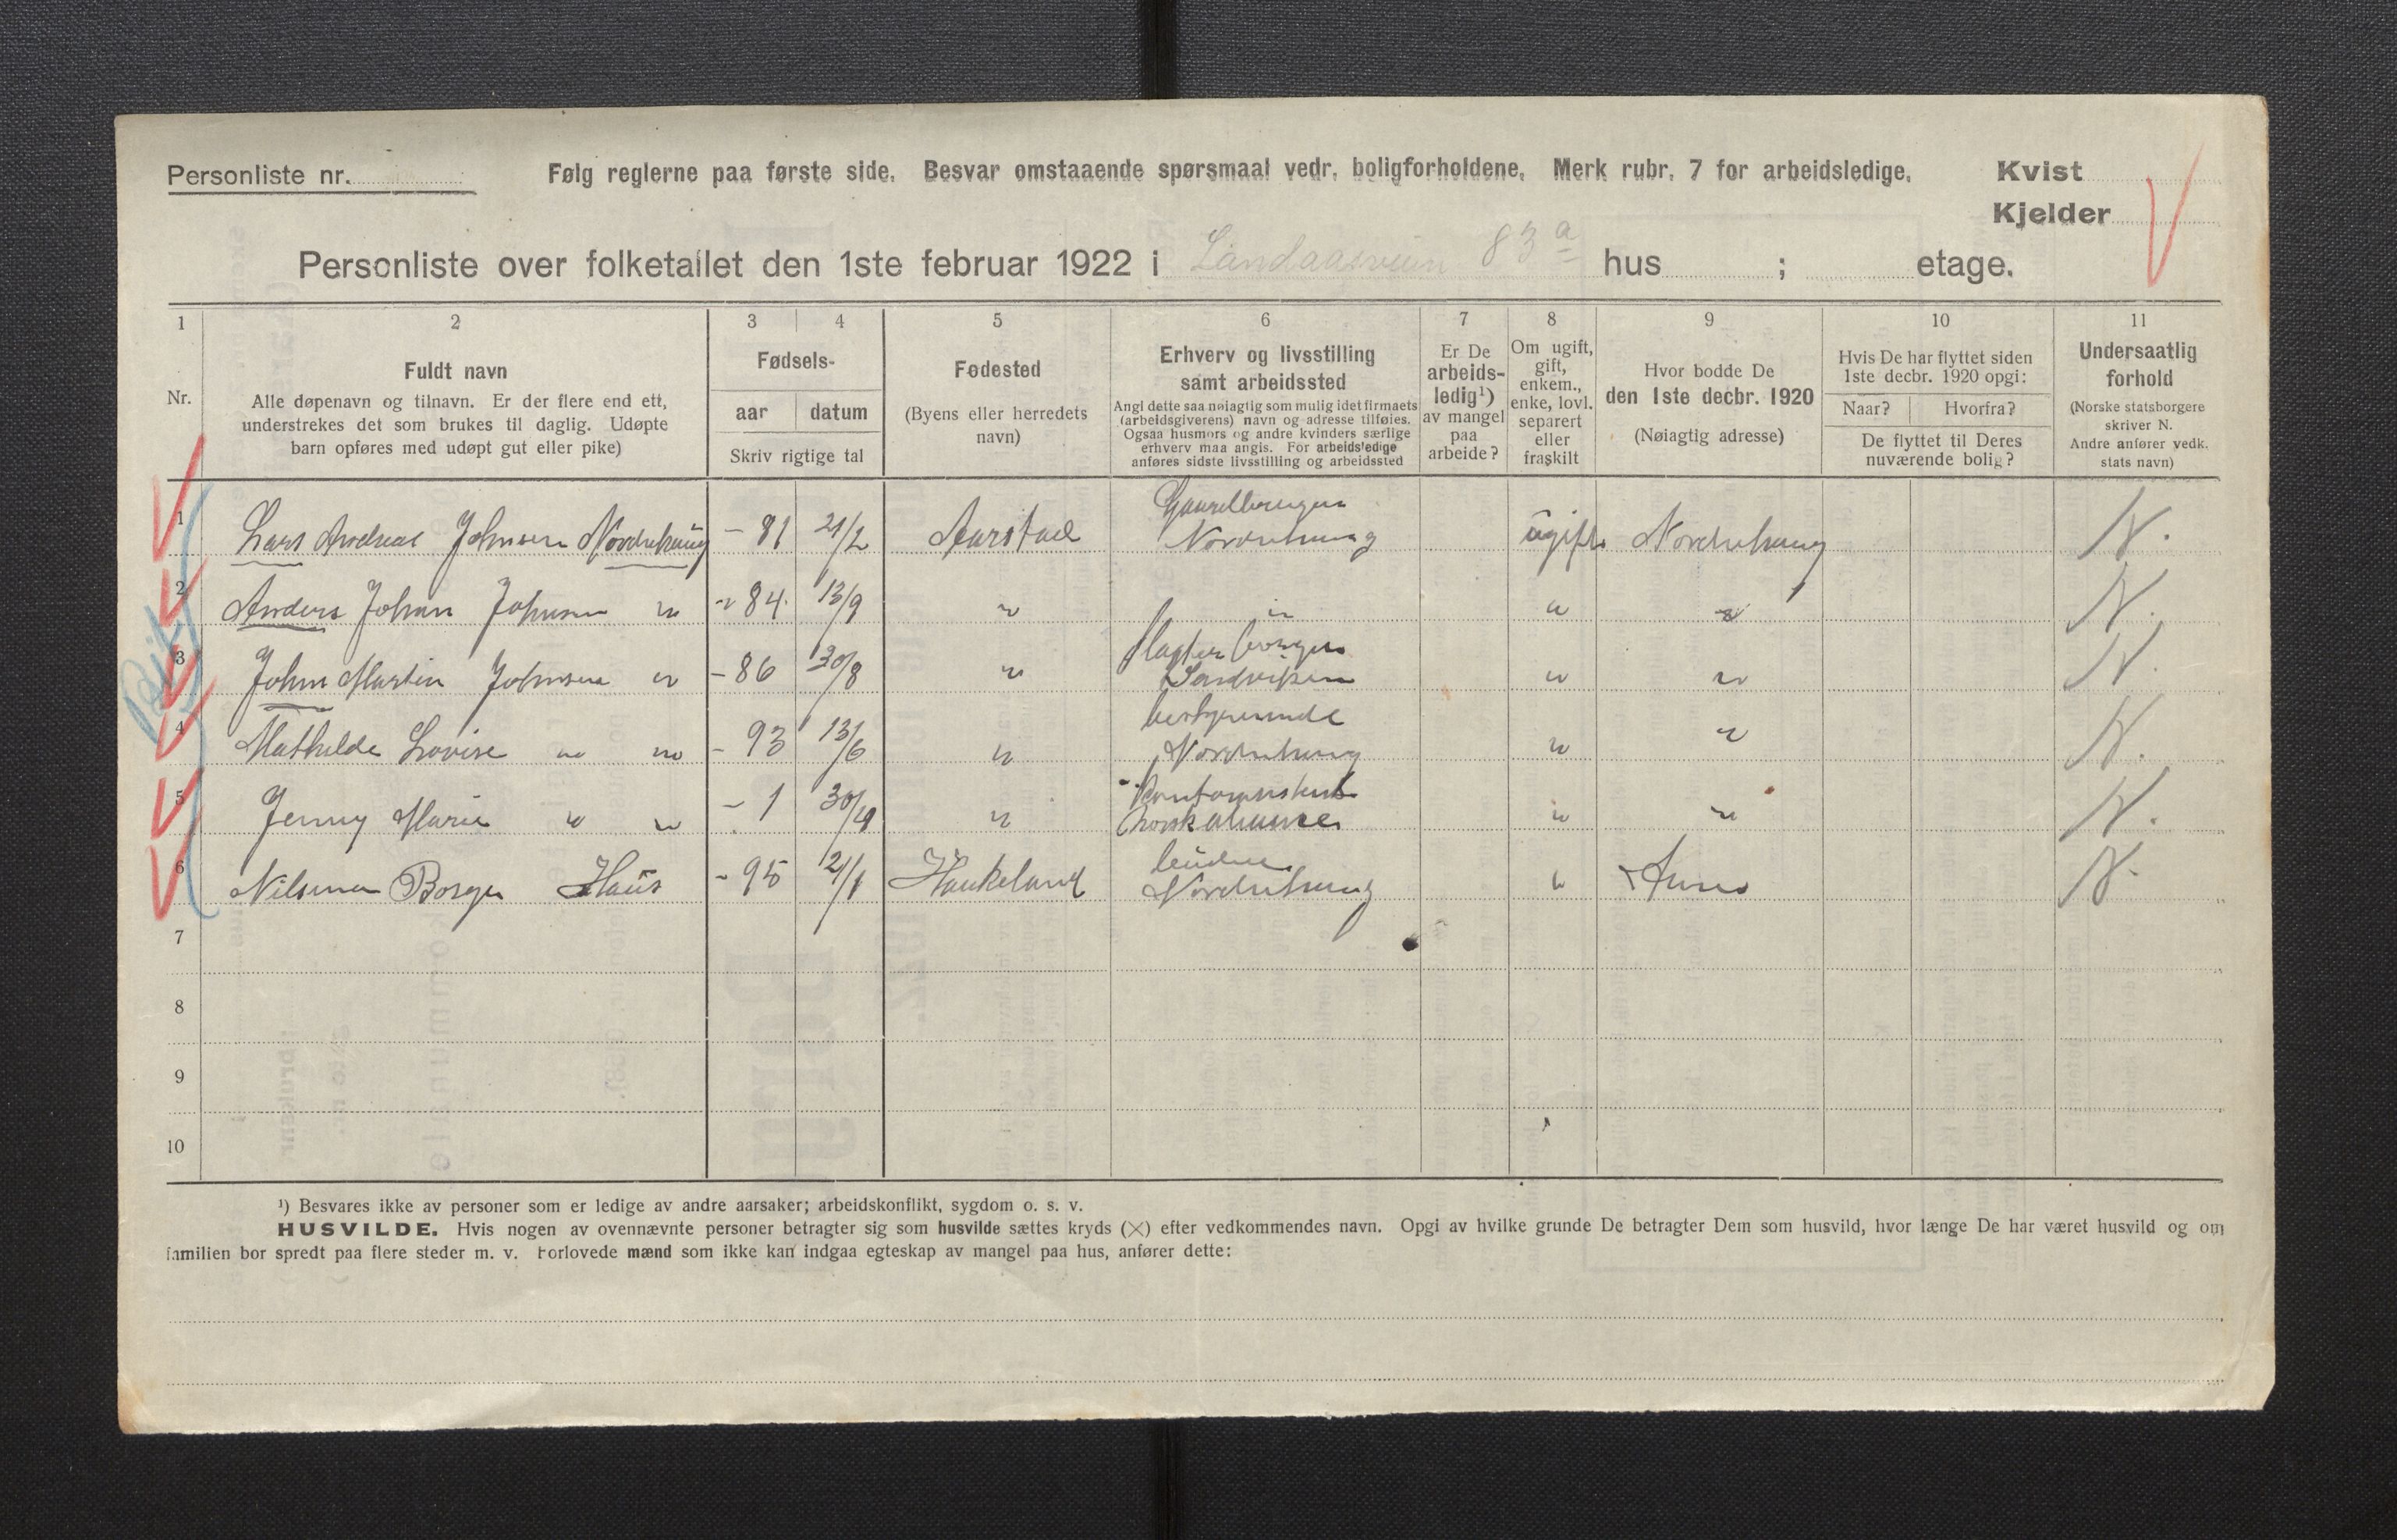 Personliste nr.
Følg reglerne paa første side. Besvar omstaaende spørsmaal vedr. boligforholdene. Merk rubr. 7 for arbeidsledige.
Kvist
Kjelder
Personliste over folketallet den 1ste februar 1922 i Landaasveien 83 a hus ; etage.
1 2 3 4 5 6 7 8 9 10 11
Nr.
Fuldt navn
Alle døpenavn og tilnavn. Er der flere end ett,
understrekes det som brukes til daglig. Udøpte
barn opføres med udøpt gut eller pike)
Fødsels-
aar datum
Skriv rigtige tal
Fødested
(Byens eller herredets
navn)
Erhverv og livsstilling
samt arbeidssted
Angi dette saa nøiagtig som mulig idet firmaets
(arbeidsgiverens) navn og adresse tilføies.
Ogsaa husmors og andre kvinders særlige
erhverv maa angis. For arbeidsledige
anføres sidste livsstilling og arbeidssted
Er De
arbeids-
ledig¹)
av mangel
paa
arbeide?
Om ugift,
gift,
enkem.,
enke, lovl.
separert
eller
fraskilt
Hvor bodde De
den 1ste decbr. 1920
(Nøiagtig adresse)
Hvis De har flyttet siden
1ste decbr. 1920 opgi:
Naar? Hvorfra?
De flyttet til Deres
nuværende bolig?
Undersaatlig
forhold
(Norske statsborgere
skriver N.
Andre anfører vedk.
stats navn)
1 Lars Andreas Johnsen Nordrehaug - 81 21/2 Aarstad Gaardbruger Nordrehaug ugift Nordrehaug N.
2 Anders Johan Johnsen " - 84 13/9 " " " " N.
3 John Martin Johnsen " - 86 30/8 " Sandviken " " N.
4 Mathilde Lovise " " - 93 13/6 " bestyrerinde Nordrehaug " " N.
5 Jenny Marie " " - 1 30/4 " Kontoristinde " " N.
6 Nilsine Borge Haus - 95 2/1 Haukeland Nordrehaug " N.
7
8
9
10
¹) Besvares ikke av personer som er ledige av andre aarsaker; arbeidskonflikt, sygdom o. s. v.
HUSVILDE. Hvis nogen av ovennævnte personer betragter sig som husvilde sættes kryds (×) efter vedkommendes navn. Opgi av hvilke grunde De betragter Dem som husvild, hvor længe De har været husvild og om
familien bor spredt paa flere steder m. v. Forlovede mænd som ikke kan indgaa egteskap av mangel paa hus, anfører dette: